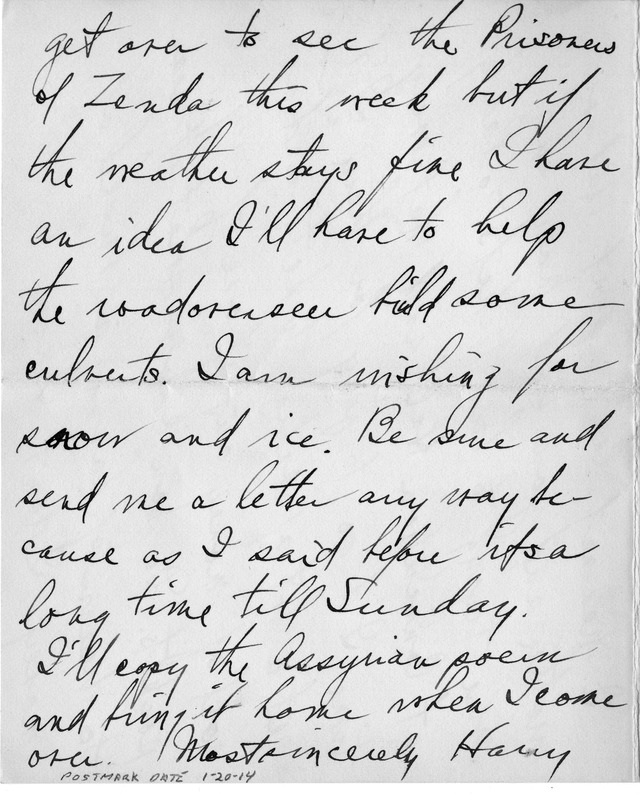 get over to see the Prisoners
of Zenda this week but if
the weather stays fine I have
an idea I'll have to help
the roadoverseer build some
culverts. I am wishing for
snow and ice. Be sure and
send me a letter any way be-
cause as I said before its a
long time till Sunday.
I'll copy the Assyrian poem
and bring it home when I come
over. Most sincerely Harry
POSTMARK DATE 1-20-14